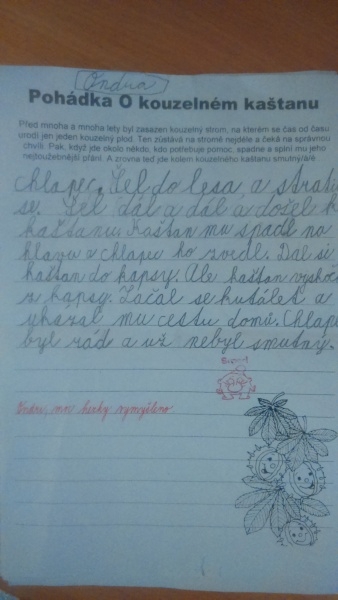 Ondra
Pohádka O kouzelném kaštanu
Před mnoha a mnoha lety byl zasazen kouzelný strom, na kterém se čas od času
urodí jen jeden kouzelný plod. Ten zůstává na stromě nejdéle a čeká na správnou
chvíli. Pak, když jde okolo někdo, kdo potřebuje pomoc, spadne a splní mu jeho
nejtoužebnější přání. A zrovna teď jde kolem kouzelného kaštanu smutný/á/é
chlapec. Šel do lesa a strati
se. Šel dál a dál a došel k
kaštanu. Kaštan mu spadl na
hlavu a chlapec ho zvedl. Dal si
kaštan do kapsy. Ale kaštan vyskoči
z kapsy. Začal se kutálet a
ukázal mu cestu domů. Chlape
byl rád a už nebyl smutný.
Ondro, moc hezky vymyšleno